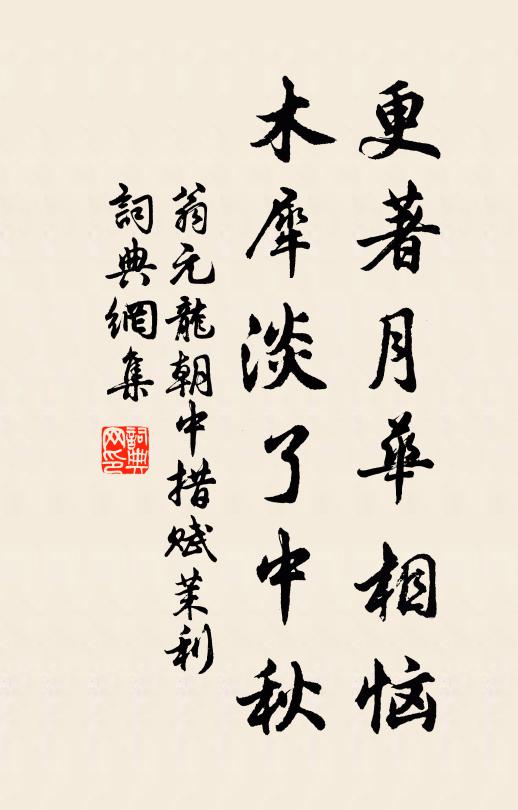 更著月華相恼
木犀淡了中秋
翁元龍朝中措賦茉利
詞典網集
詞典網印